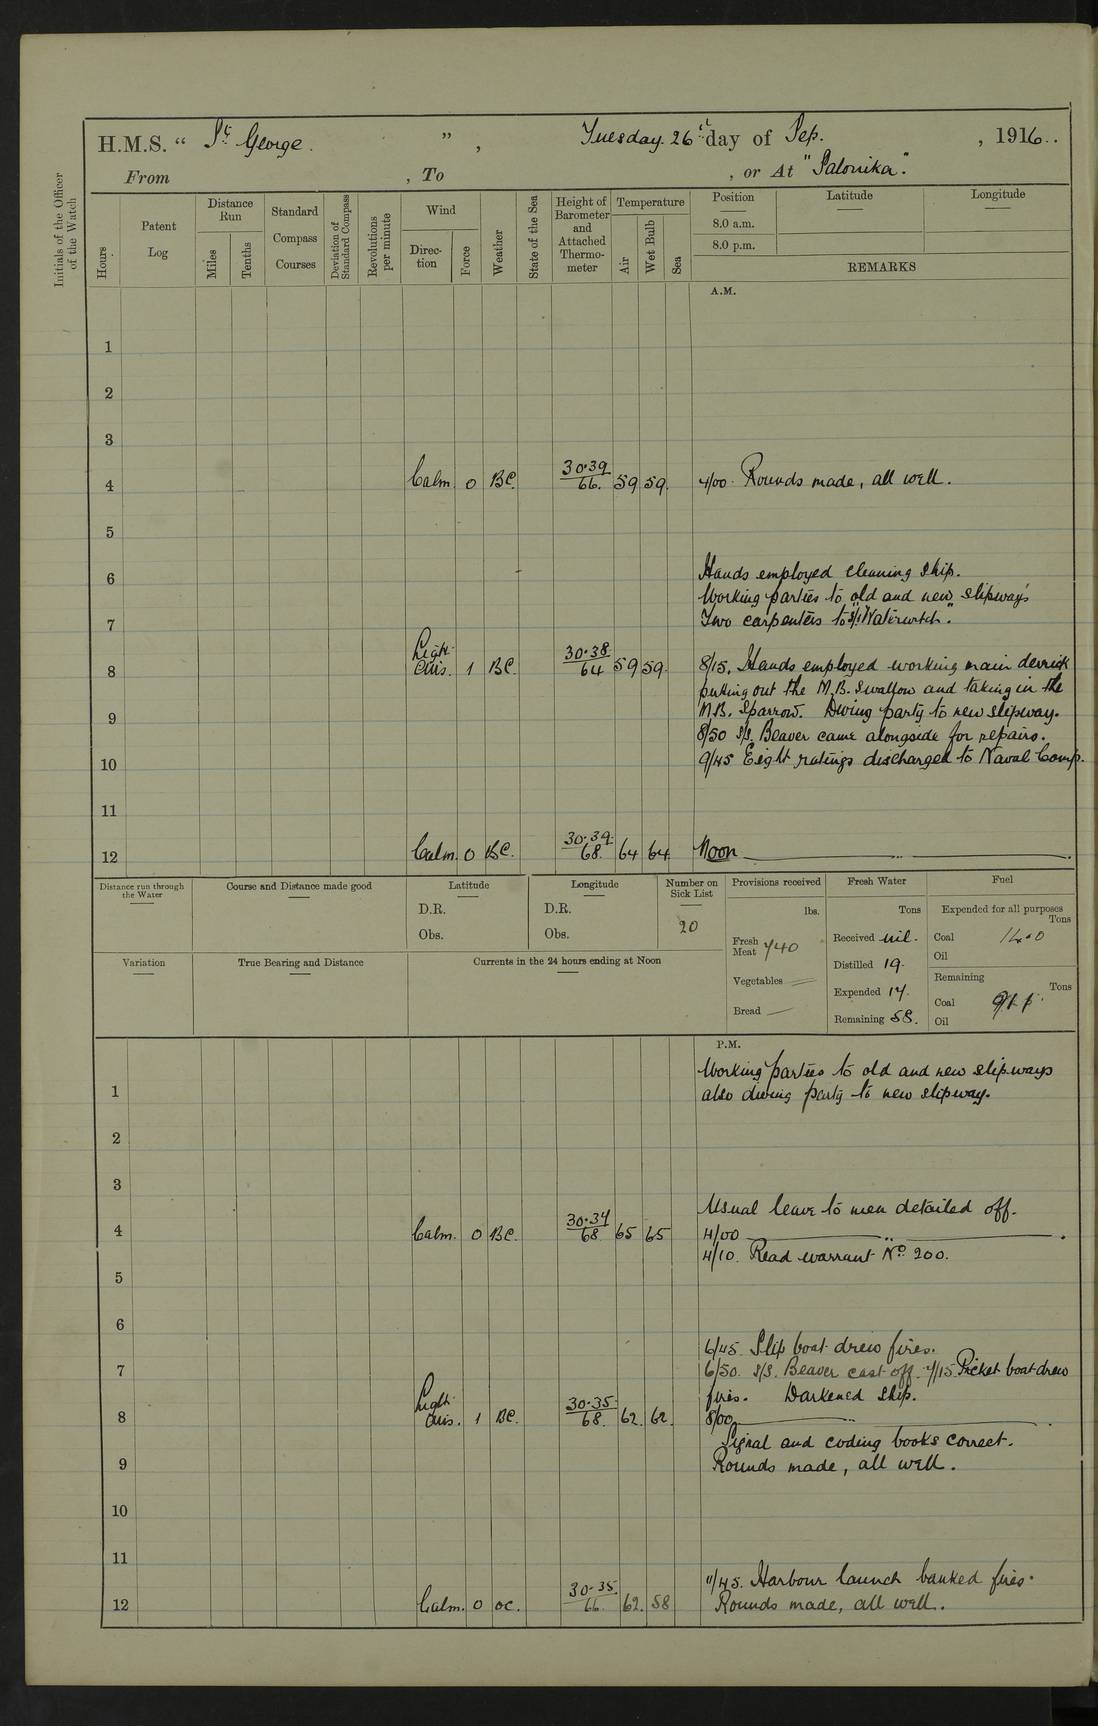 H.M.S. " St George. ", Tuesday. 26th day of Sep. , 1916..
From , To , or At "Salonika".
Initials of the Officer of the Watch
Hours
Patent Log
Distance Run
Miles
Tenths
Standard Compass Courses
Deviation of Standard Compass
Revolutions per minute
Wind
Direction
Force
Weather
State of the Sea
Height of Barometer and Attached Thermometer
Temperature
Air
Wet Bulb
Sea
Position
8.0 a.m.
8.0 p.m.
Latitude
Longitude
REMARKS
A.M.
1
2
3
4 Calm. 0 BC. 30.39 66. 59 59. 4/00. Rounds made, all well.
5
6 Hands employed cleaning ship.
Working parties to old and new slipways
7 Two carpenters to S/S "Waterwitch".
8 Light airs. 1 BC 30.38 64 59 59. 8/15. Hands employed working main derrick
putting out the M.B. Swallow and taking in the
9 M.B. Sparrow. Diving party to new slipway.
8/50 S/S. Beaver came alongside for repairs.
10 9/45 Eight ratings discharged to Naval Camp.
11
12 Calm. 0 BC. 30.39. 68. 64 64. Noon
Distance run through the Water
Course and Distance made good
Latitude
D.R.
Obs.
Longitude
D.R.
Obs.
Number on Sick List
20
Provisions received
lbs.
Fresh Meat 740
Vegetables
Bread
Fresh Water
Tons
Received nil.
Distilled 19.
Expended 17.
Remaining 58.
Fuel
Expended for all purposes
Tons
Coal
Oil
Remaining
Tons
Coal
Oil
Variation
True Bearing and Distance
Currents in the 24 hours ending at Noon
P.M.
Working parties to old and new slipways
1 also diving party to new slipway.
2
3
Usual leave to men detailed off.
4 Calm. 0 BC. 30.34 68 65 65 4/00
4/10. Read warrant No. 200.
5
6
6/45. Slip boat drew fires.
7 6/50. S/S. Beaver cast off. 7/15. Picket boat drew
fires. Darkened ship.
8 Light airs. 1 BC. 30.35 68. 62. 62. 8/00
Signal and coding books correct.
9 Rounds made, all well.
10
11
11/45. Harbour launch banked fires.
12 Calm. 0 OC. 30.35 66. 62. 58 Rounds made, all well.